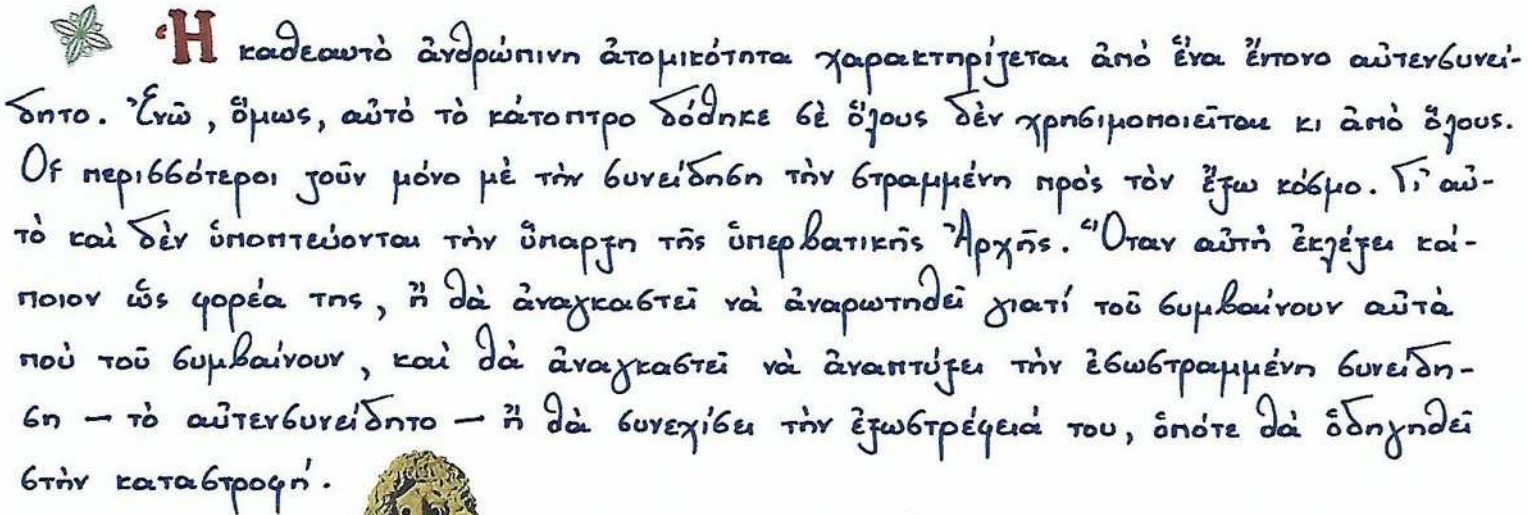 Ἡ καθεαυτὸ ἀνθρώπινη ἀτομικότητα χαρακτηρίζεται ἀπὸ ἕνα ἔντονο αὐτενσυνεί-
δητο. Ἐνῶ, ὅμως, αὐτὸ τὸ κάτοπτρο δόθηκε σὲ ὅλους δὲν χρησιμοποιεῖται κι ἀπὸ ὅλους.
Οἱ περισσότεροι ζοῦν μόνο μὲ τὴν συνείδηση τὴν στραμμένη πρὸς τὸν ἔξω κόσμο. Γι᾿ αὐ-
τὸ καὶ δὲν ὑποπτεύονται τὴν ὕπαρξη τῆς ὑπερβατικῆς Ἀρχῆς. Ὅταν αὐτὴ ἐκλέξει κά-
ποιον ὡς φορέα της, ἢ θὰ ἀναγκαστεῖ νὰ ἀναρωτηθεῖ γιατί τοῦ συμβαίνουν αὐτὰ
ποὺ τοῦ συμβαίνουν, καὶ θὰ ἀναγκαστεῖ νὰ ἀναπτύξει τὴν ἐσωστραμμένη συνείδη-
ση — τὸ αὐτενσυνείδητο — ἢ θὰ συνεχίσει τὴν ἐξωστρέφειά του, ὁπότε θὰ ὁδηγηθεῖ
στὴν καταστροφή.